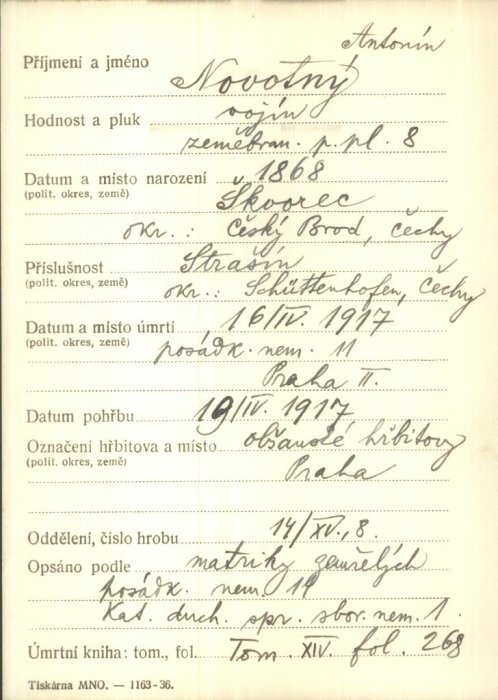 Antonín
Příjmení a jméno Novotný
Hodnost a pluk vojín
zeměbran. p. pl. 8
Datum a místo narození 1868
(polit. okres, země) Škvorec
okr.: Český Brod, Čechy
Příslušnost Strašín
(polit. okres, země) okr.: Schüttenhofen, Čechy
Datum a místo úmrtí 16/IV. 1917
(polit. okres, země) posádk. nem. 11
Praha II.
Datum pohřbu 19/IV. 1917
Označení hřbitova a místo olšanské hřbitovy
(polit. okres, země) Praha
Oddělení, číslo hrobu 14/XV., 8.
Opsáno podle matriky zemřelých
posádk. nem. 11
Kat. duch. spr. sbor. nem. 1.
Úmrtní kniha: tom., fol. Tom. XIV. fol. 268
Tiskárna MNO. — 1163-36.